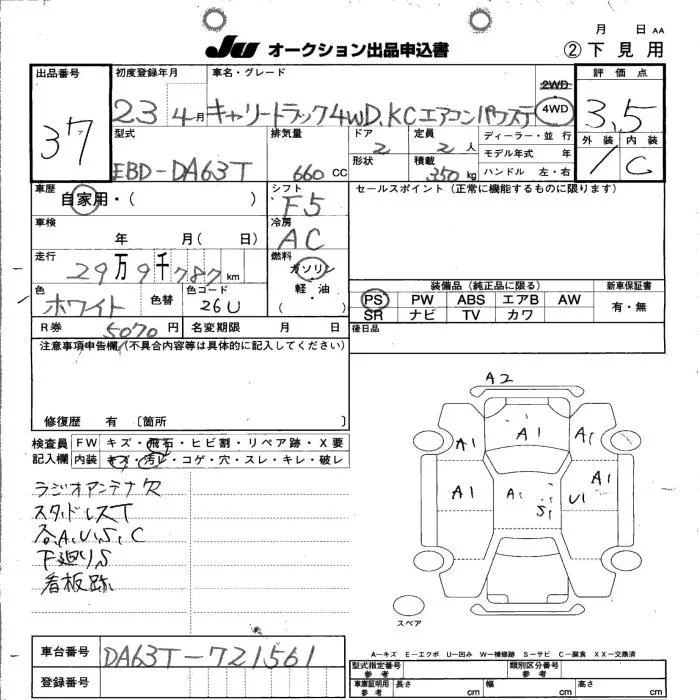 月 日 AA
JU オークション出品申込書 ②下見用
出品番号 初度登録年月 車名・グレード 2WD 評価点
37 23 4月 キャリートラック4WD.KCエアコンパワステ 4WD 3.5
型式 排気量 ドア 定員 ディーラー・並行 外装 内装
EBD-DA63T 660 CC 2 2 人 モデル年式 年 / C
形状 積載 350 kg ハンドル 左・右
車歴 シフト セールスポイント(正常に機能するものに限ります)
自家用・( ) F5
車検 冷房
年 月( 日) AC
走行 燃料
29万9千787km ガソリン
色 色替 色コード 軽・油
ホワイト 26U ( )
装備品(純正品に限る) 新車保証書
PS PW ABS エアB AW 有・無
SR ナビ TV カワ
R券 5070円 名変期限 月 日 後日品
注意事項申告欄(不具合内容等は具体的に記入してください)
修復歴 有 [箇所 ]
検査員 FW キズ・飛石・ヒビ割・リペア跡・X要
記入欄 内装 キズ・汚レ・コゲ・穴・スレ・キレ・破レ
ラジオアンテナ欠
スタッドレスT
各A,U,S,C
下廻りS
看板跡
A2
A1 A1 A1
A1 A1 U1
S1
スペア
A−キズ E−エクボ U−凹み W−補修跡 S−サビ C−腐食 XX−交換済
車台番号 DA63T-721561
登録番号
型式指定番号 参考 類別区分番号 参考
車庫証明用 参考 長さ cm 幅 cm 高さ cm